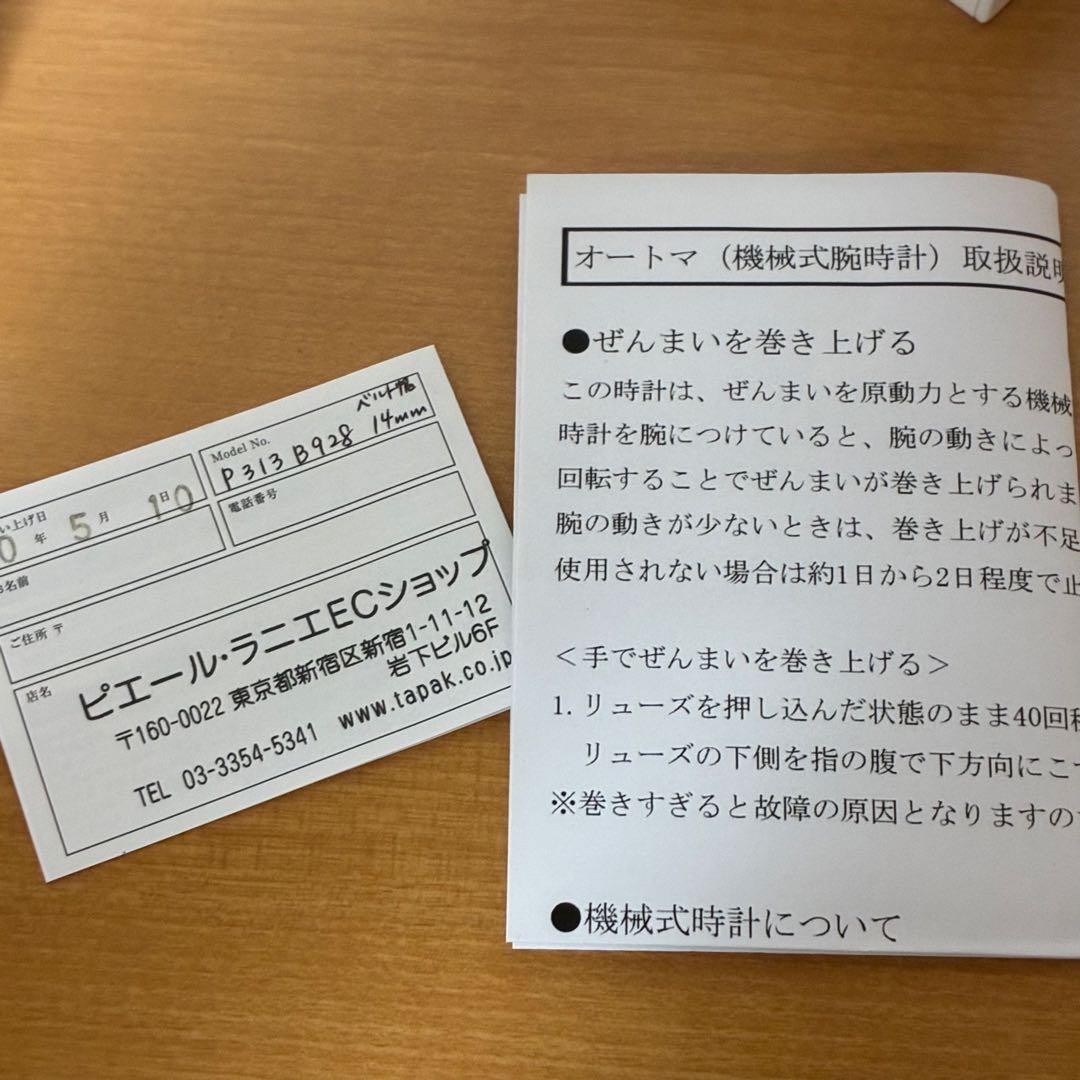 い上げ日
0 年 5 月 10 日
Model No.
ベルト幅
P313B928 14mm
電話番号
名前
ご住所 〒
店名
ピエール・ラニエECショップ
〒160-0022 東京都新宿区新宿1-11-12
岩下ビル6F
TEL 03-3354-5341 www.tapak.co.jp
オートマ（機械式腕時計）取扱説明
●ぜんまいを巻き上げる
この時計は、ぜんまいを原動力とする機械
時計を腕につけていると、腕の動きによっ
回転することでぜんまいが巻き上げられま
腕の動きが少ないときは、巻き上げが不足
使用されない場合は約1日から2日程度で止
＜手でぜんまいを巻き上げる＞
1. リューズを押し込んだ状態のまま40回程
リューズの下側を指の腹で下方向にこ
※巻きすぎると故障の原因となりますの
●機械式時計について